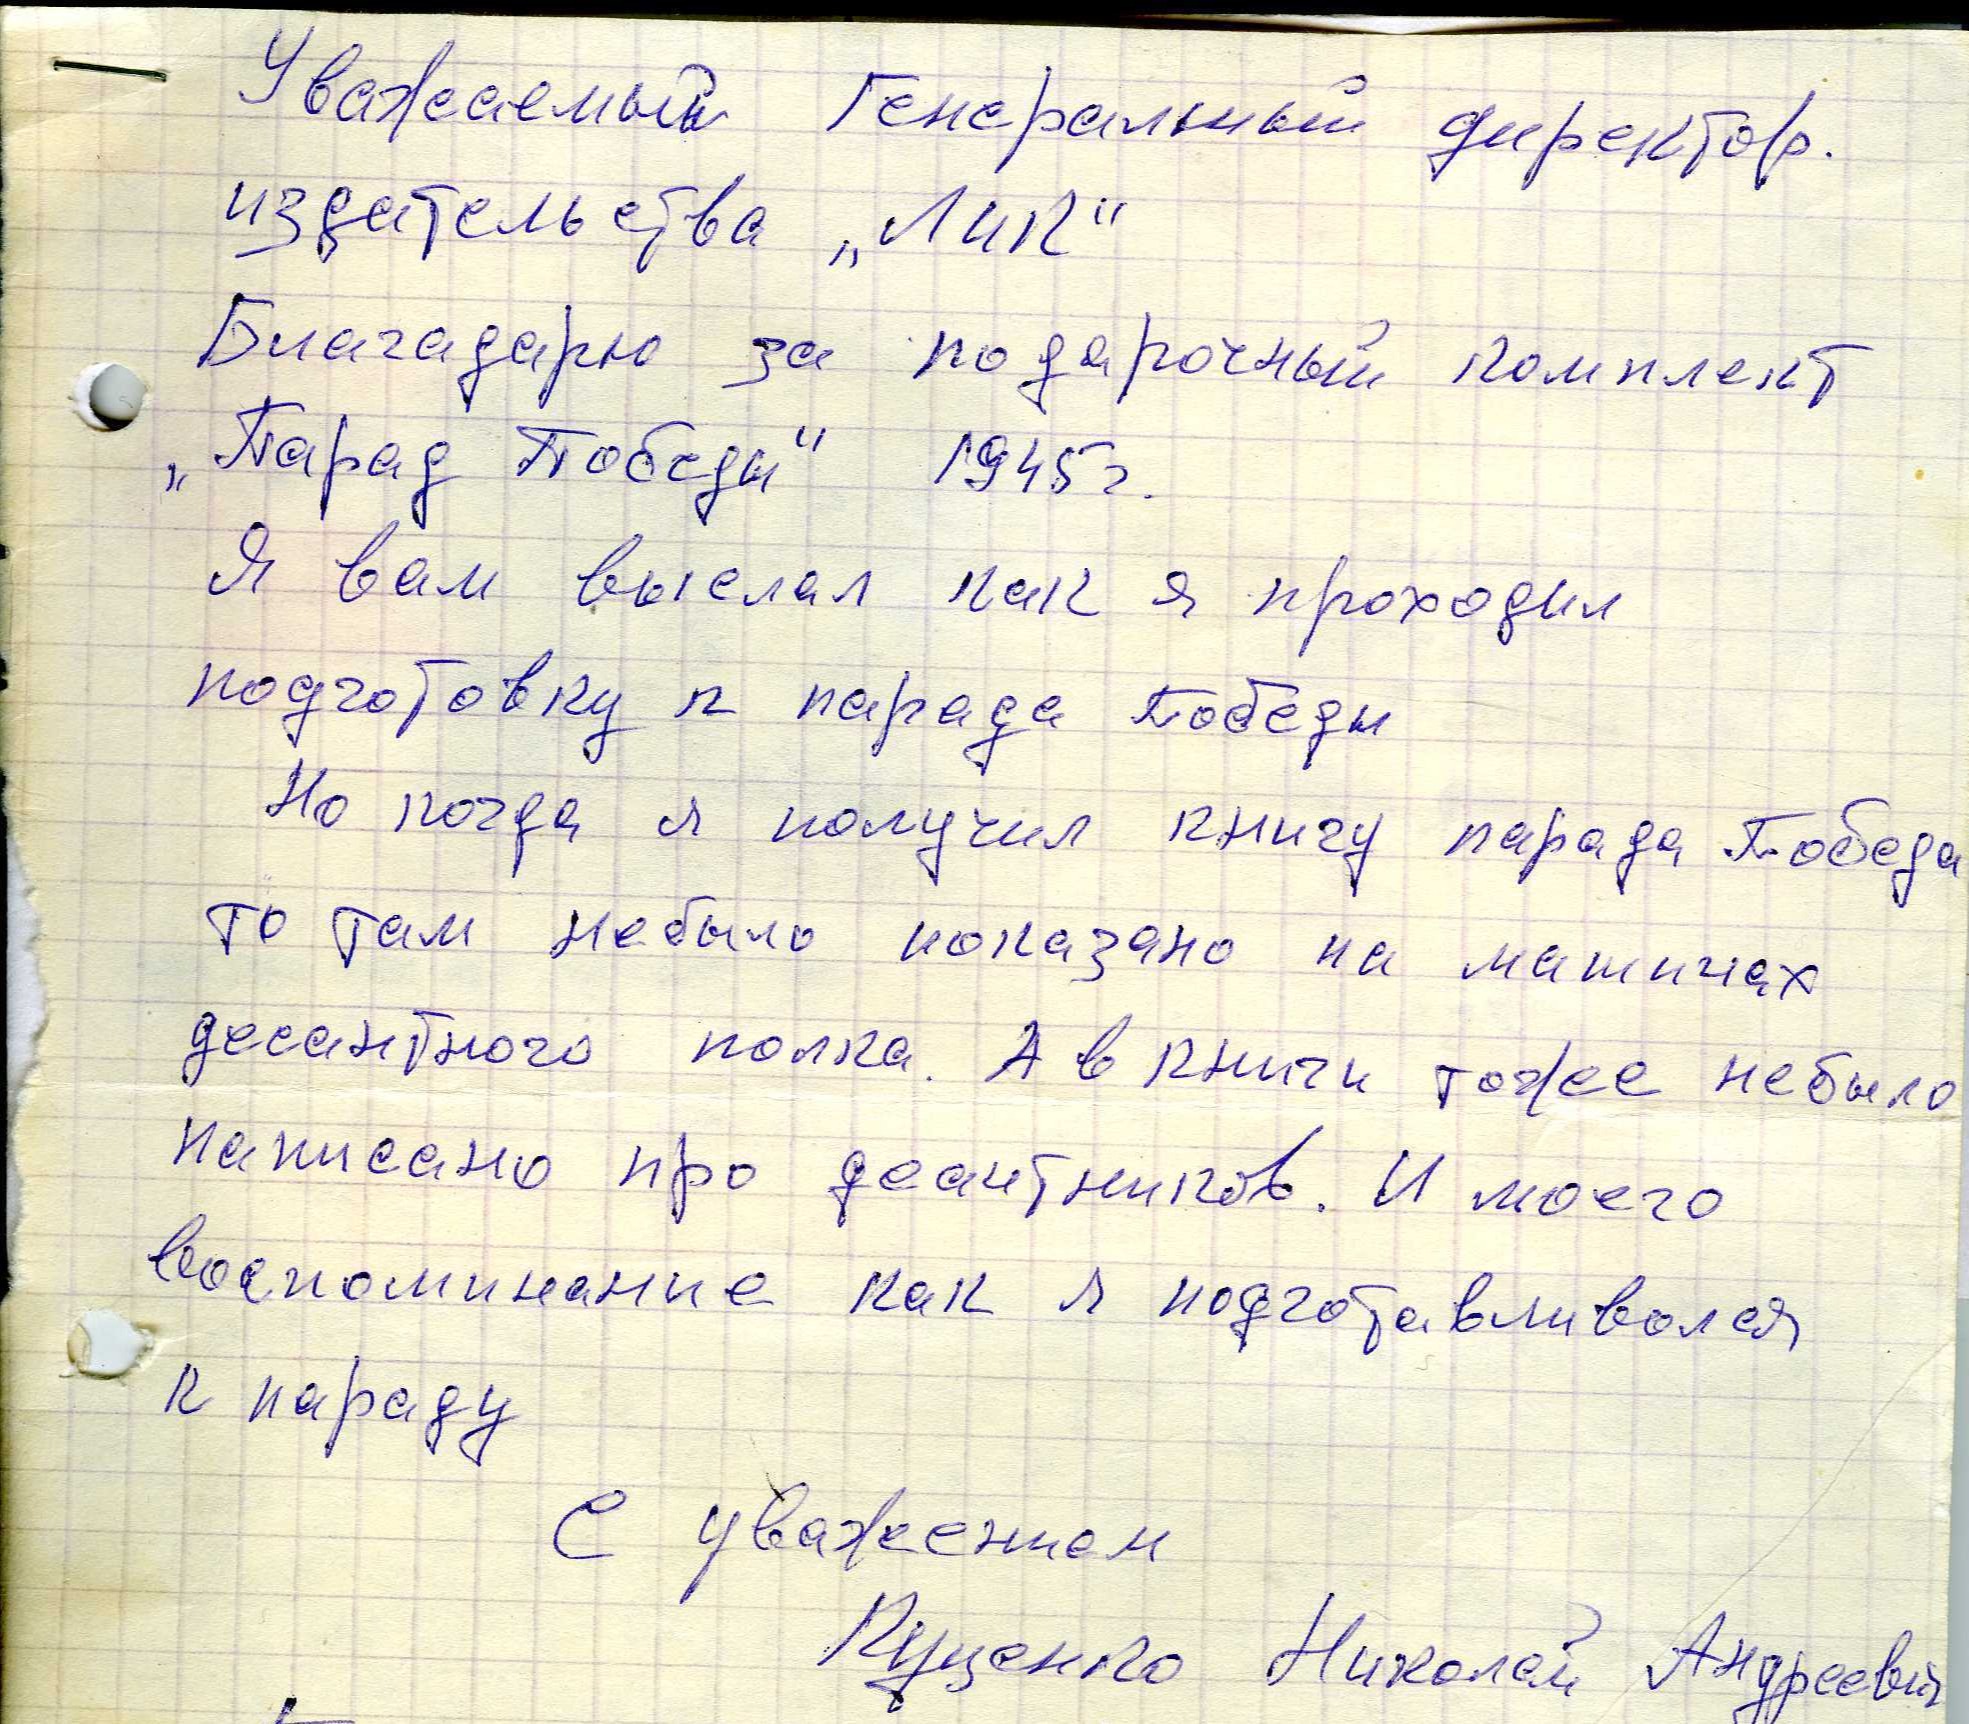 Уважаемый Генеральный директор.
издательства „ЛИК“
Благадарю за подарочный комплект
„Парад Победы“ 1945г.
Я вам выслал как я проходил
подготовку к парада Победы
Но когда я получил книгу парада Победа
то там небыло показано на машинах
десантного полка. А в книги тоже небыло
написано про деантников. И моего
воспоминание как я подготавливолся
к параду
С уважением
Куценко Николай Андреевич